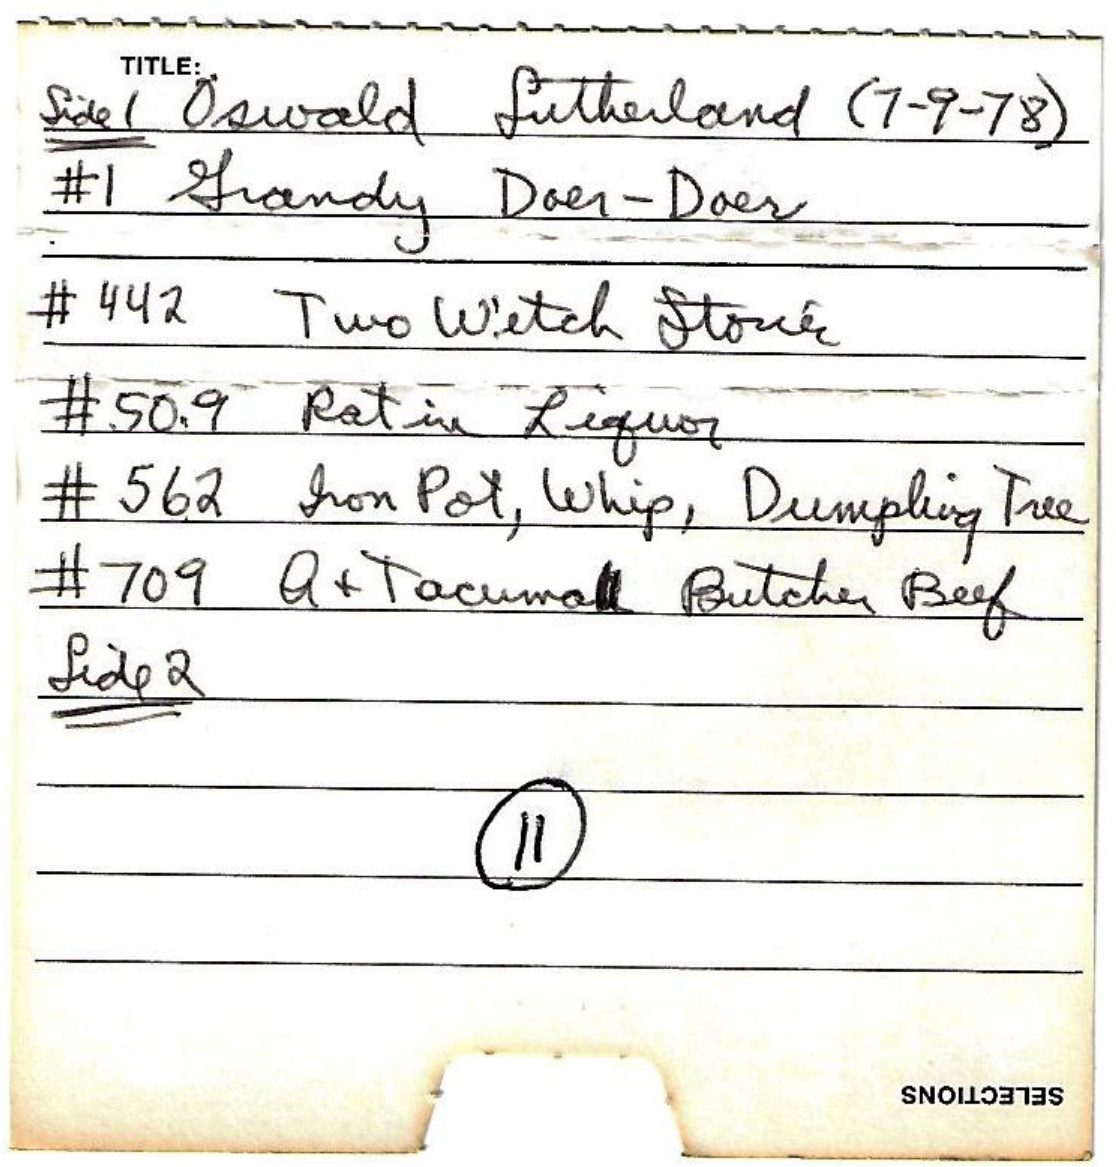 TITLE:
Side 1 Oswald Sutherland (7-9-78)
#1 Grandy Doer-Doer
#442 Two Witch Stories
#50.9 Rat in Liquor
#562 Iron Pot, Whip, Dumpling Tree
#709 A + Tacuma Butcher Beef
Side 2
11
SELECTIONS